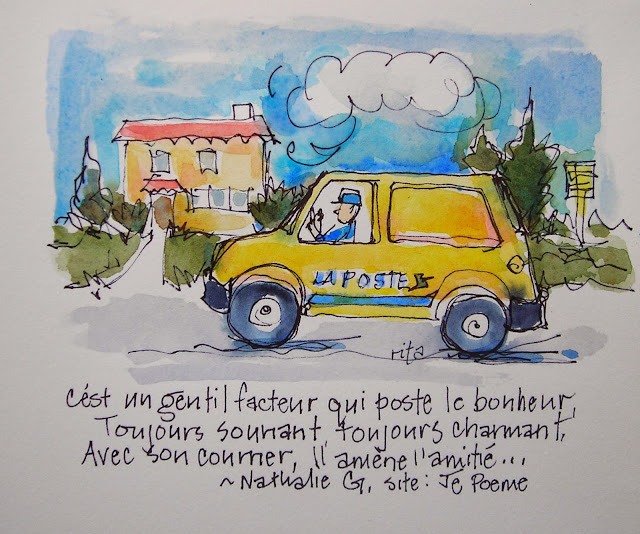 LA POSTE
rita
c'ést un gentil facteur qui poste le bonheur,
Toujours souriant, toujours charmant,
Avec son courrier, il amène l'amitié...
~ Nathalie G., site: Je Poeme